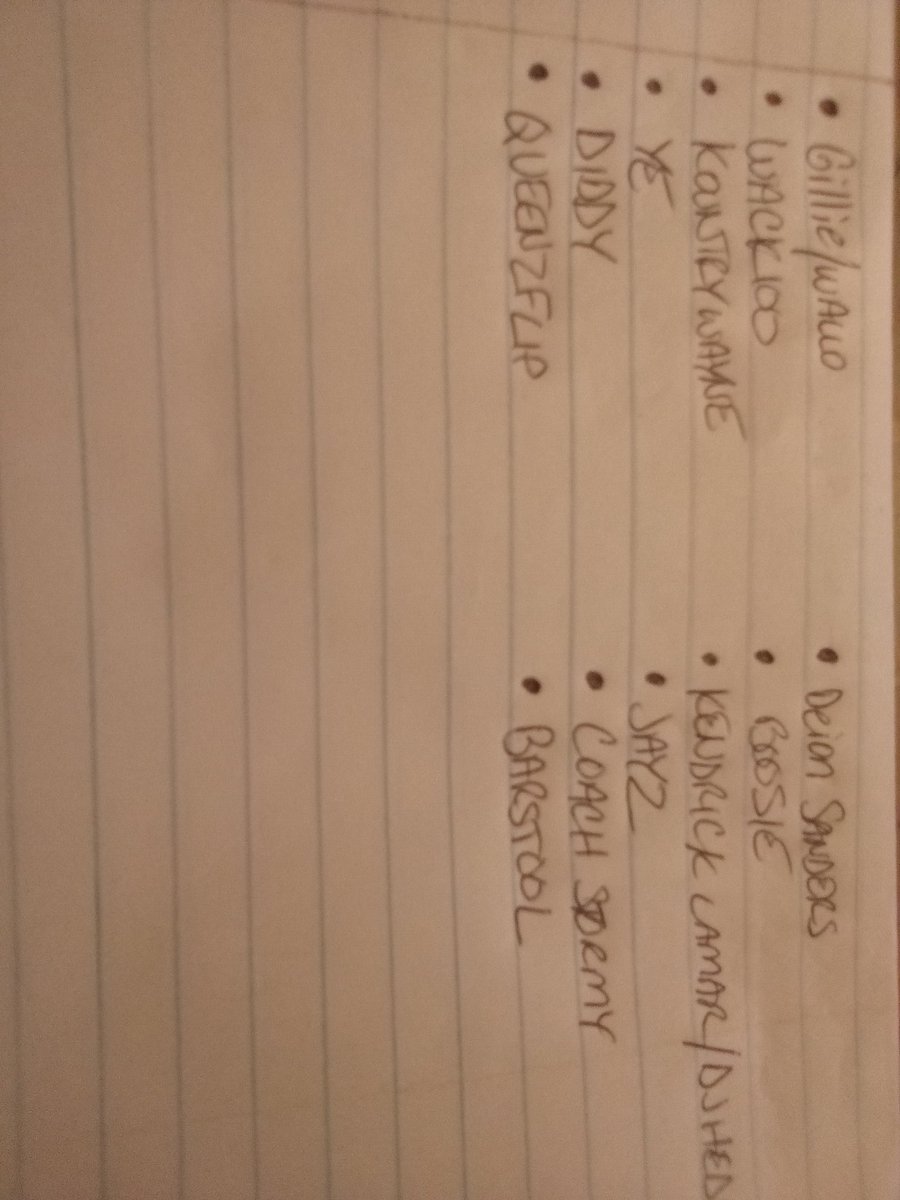 • Gillie/WALLO
• WACK100
• KOUNTRY WAYNE
• YE
• DIDDY
• QUEENZFLIP
• Deion SANDERS
• BOOSIE
• KENDRICK LAMAR/DJ HED
• JAYZ
• COACH STORMY
• BARSTOOL